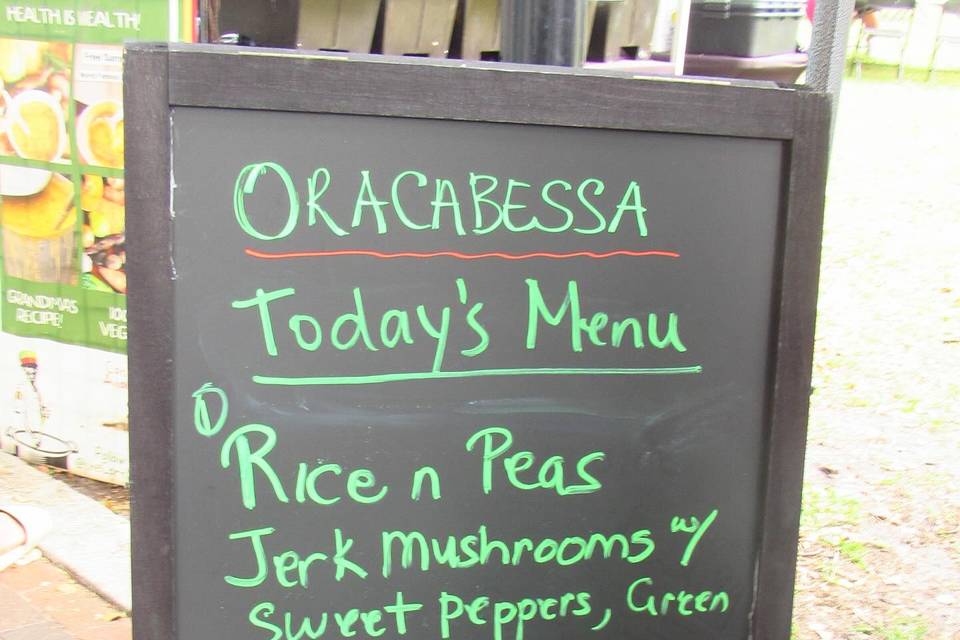 HEALTH IS WEALTH!
ORACABESSA
Today's Menu
GRANDMA'S
RECIPE!
1) Rice n Peas
Jerk mushrooms w/
sweet peppers, Green